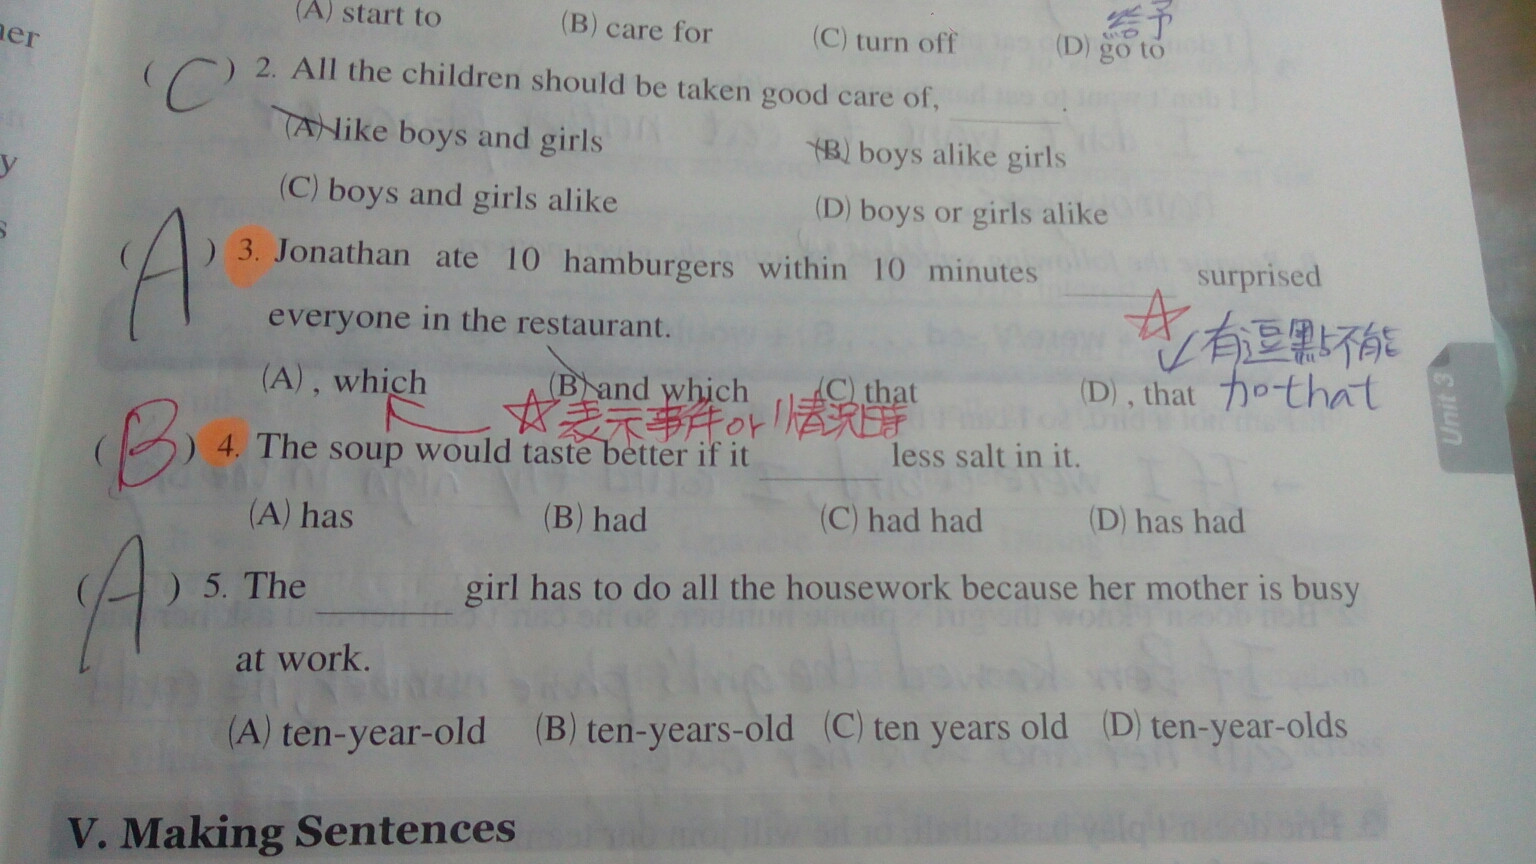 (A) start to (B) care for (C) turn off (D) go to 給予
( C ) 2. All the children should be taken good care of, ______
(A) like boys and girls (B) boys alike girls
(C) boys and girls alike (D) boys or girls alike
( A ) 3. Jonathan ate 10 hamburgers within 10 minutes ______ surprised
everyone in the restaurant.
☆ ↙有逗點不能
(A) , which (B) and which (C) that (D) , that 加that
☆表示事件or情況時
( B ) 4. The soup would taste better if it ______ less salt in it.
(A) has (B) had (C) had had (D) has had
( A ) 5. The ______ girl has to do all the housework because her mother is busy
at work.
(A) ten-year-old (B) ten-years-old (C) ten years old (D) ten-year-olds
V. Making Sentences
Unit 3